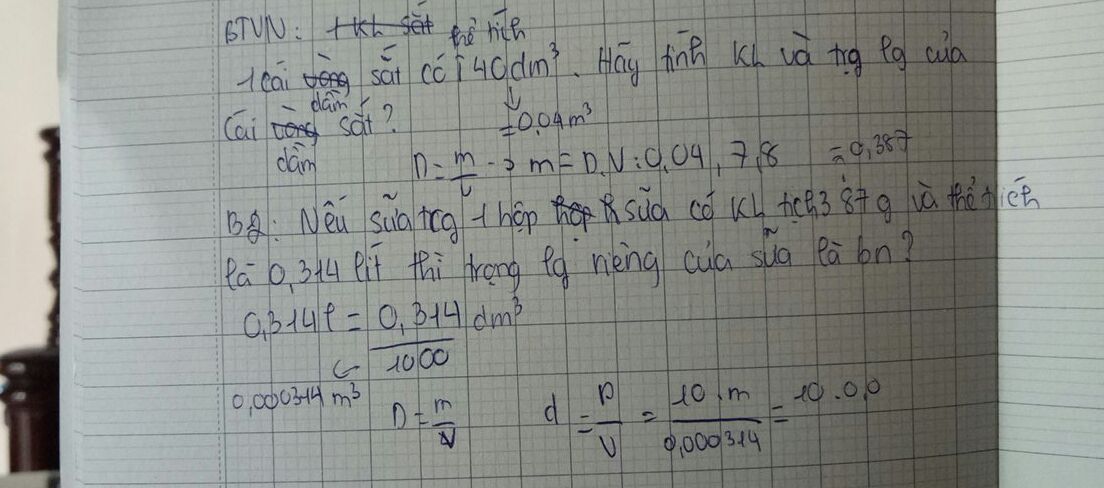 BTVN: 1 KL sắt thể tích
1 cái vòng sắt có 40dm³. Hãy tính KL và trg lg của
dầm
cái vòng sắt? = 0,04m³
dầm D = m/V -> m = D.V: 0,04 . 7,8 = 0,387
B2: Nếu sữa trg 1 hộp sữa có KL tịch 387g và thể tích
là 0,314 lít thì trọng lg riêng của sữa là bn?
0,314l = 0,314/1000 dm³
0,000314 m³ D = m/V d = P/V = 10.m/0,000314 = 10.0,0